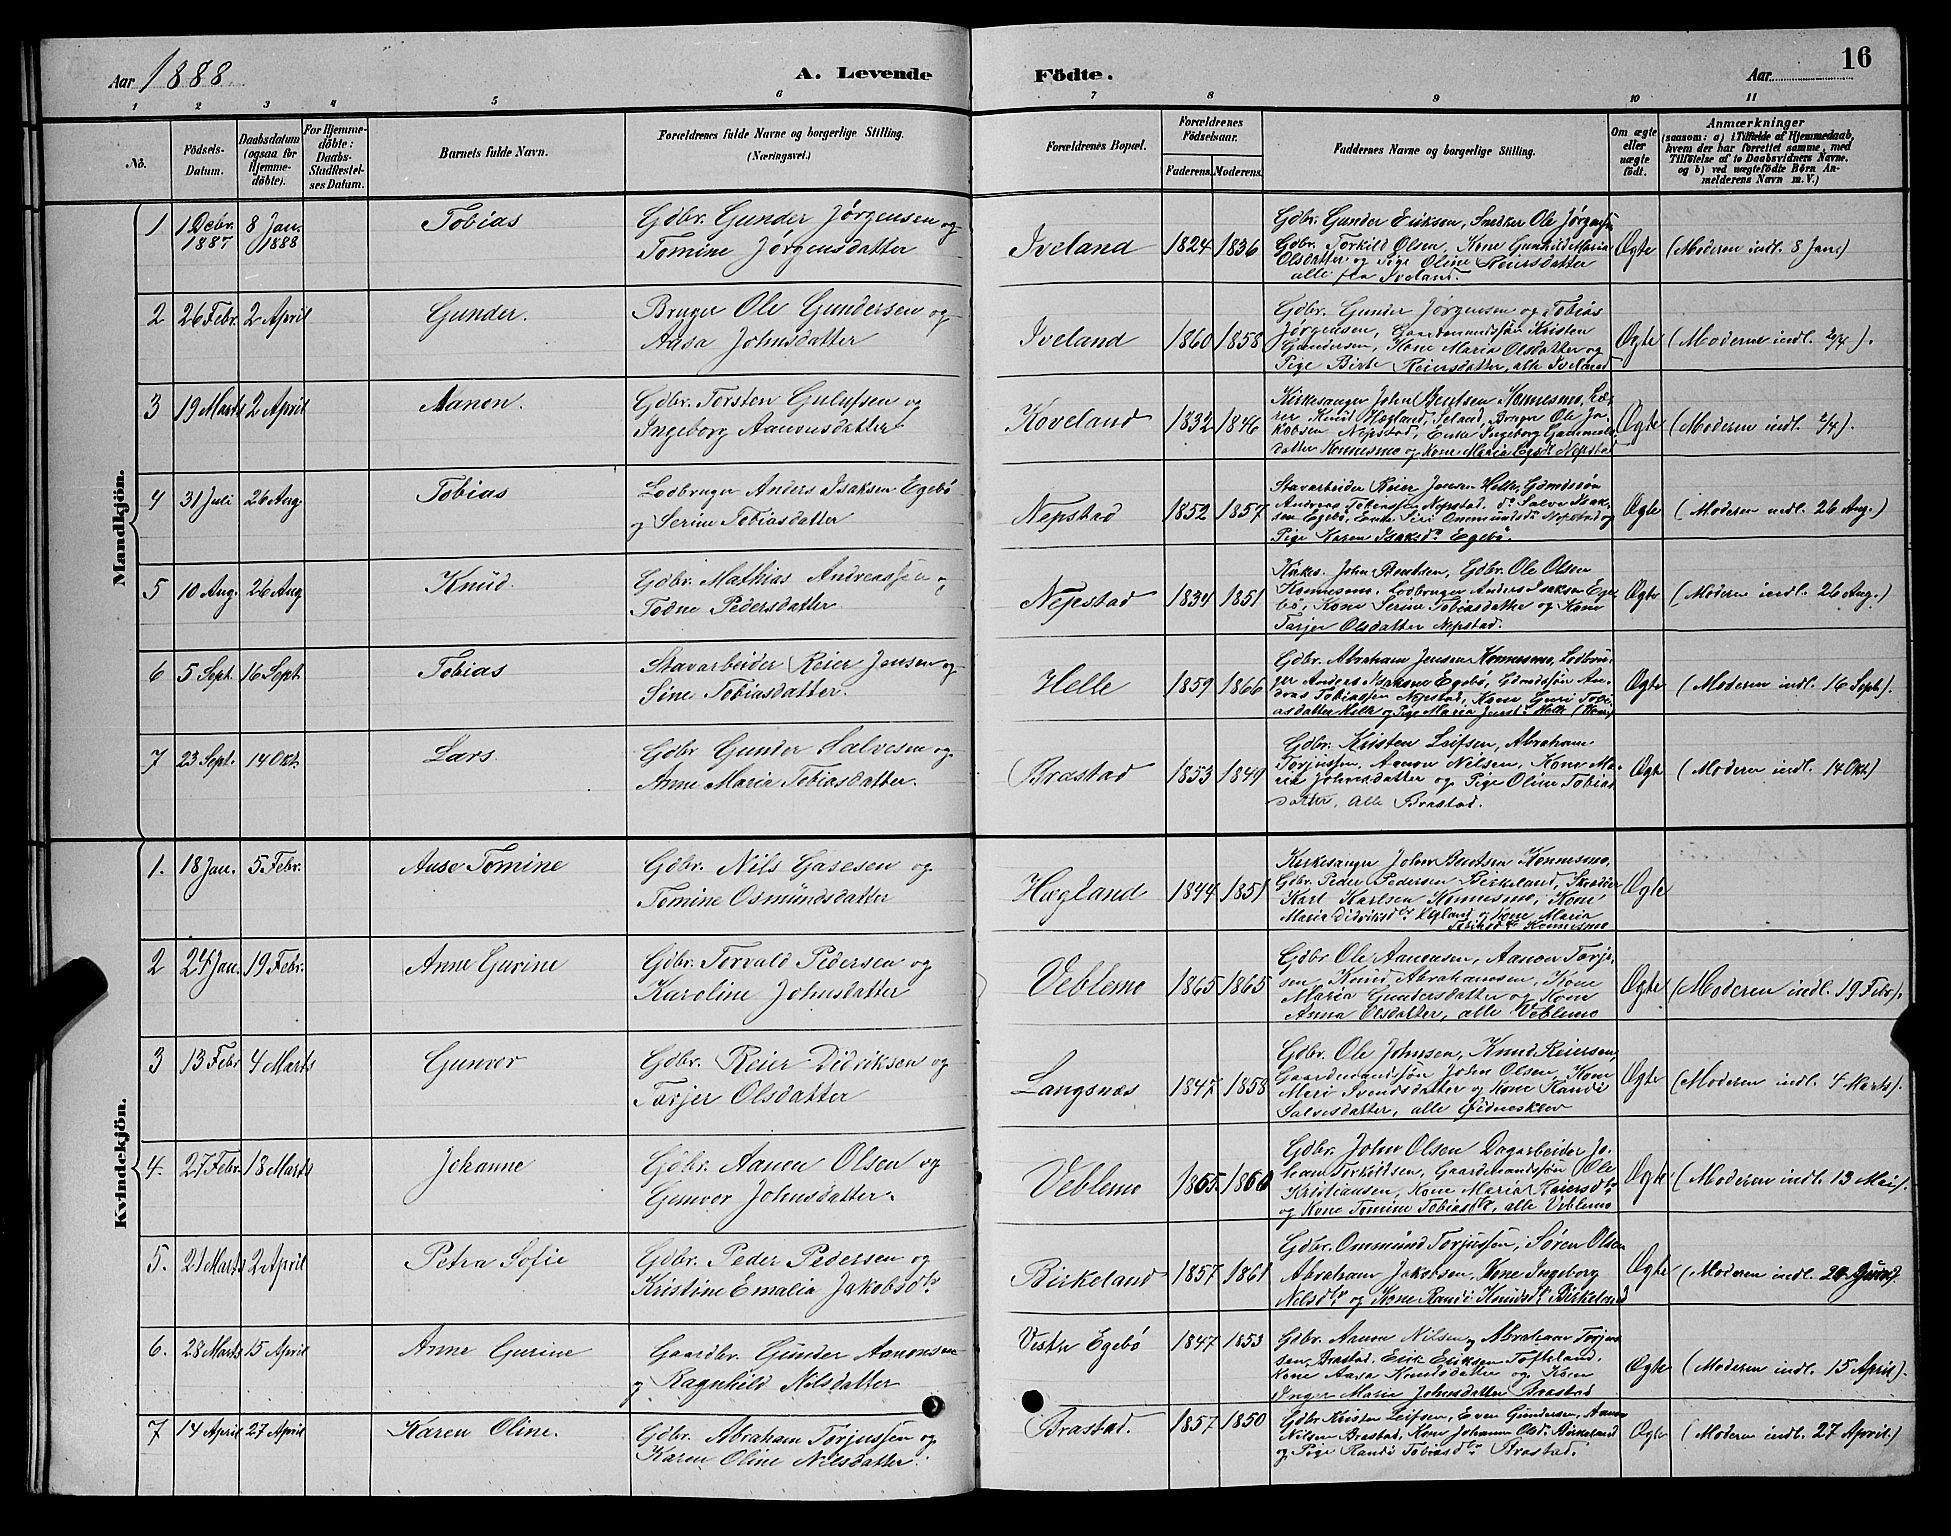 Aar 1888. A. Levende Födte. Aar 16
1 2 3 4 5 6 7 8 9 10 11
Nö. Födsels-Datum. Daabsdatum (ogsaa for Hjemmedöbte). For Hjemmedöbte: Daabs-Stadfæstelses Datum. Barnets fulde Navn. Forældrenes fulde Navne og borgerlige Stilling. (Næringsvei.) Forældrenes Bopæl. Forældrenes Födselsaar. Faderens. Moderens. Faddernes Navne og borgerlige Stilling. Om ægte eller uægte födt. Anmærkninger (saasom: a) i Tilfælde af Hjemmedaab, hvem der har forrettet samme, med Tilföielse af to Daabsvidners Navne. og b) ved uægtefödte Börn Anmelderens Navn m. V.)
Mandkjön.
1 1 Decbr. 1887 8 Jan. 1888 Tobias Gdbr. Gunder Jørgensen og
Tomine Jørgensdatter Iveland 1824 1836
Gdbr. Gunder Eriksen, Snedker Ole Jørgensen
Gdbr. Torkild Olsen, Kone Gunhild Maria
Olsdatter og Pige Oline Reiersdatter
alle fra Iveland. Ægte (Moderen indl. 8 Jan.)
2 26 Febr. 2 April Gunder. Bruger Ole Gundersen og
Aasa Johnsdatter Iveland 1860 1858
Gdbr. Gunder Jørgensen og Tobias
Jørgensen, Gaardmandssøn Kristen
Gundersen, Kone Maria Olsdatter og
Pige Birte Reiersdatter, alle Iveland Ægte (Moderen indl. 2/4).
3 19 Marts 2 April Aanen. Gdbr. Torsten Gulufsen og
Ingeborg Aanonsdatter Koveland 1832 1846
Kirkesanger John Bentsen Konnesmo, Læ-
rer Knud Hægland, Bruger Ole Ja-
kobsen Nepstad, Enke Ingeborg
datter Konnesmo og Kone Maria Nepstad Ægte (Moderen indl. 2/4).
4 31 Juli 26 Aug. Tobias Lodbruger Anders Isaksen Egebø
og Serine Tobiasdatter Nepstad 1852 1857
Stavarbeider Reier Jensen Helle, Gdmdssøn
Andreas Tobiassen Nepstad, do Salve Isak-
sen Egebø, Enke Siri Ommundsdr Nepstad og
Pige Karen Isaksdr Egebø. Ægte (Moderen indl. 26 Aug.)
5 10 Aug. 26 Aug Knud. Gdbr. Mathias Andreassen og
Todne Pedersdatter Nepstad 1834 1851
Kirkes. John Bentsen, Gdbr. Ole Olsen
Konnesmo, Lodbruger Anders Isaksen Ege-
bø, Kone Serine Tobiasdatter og Kone
Tarjer Olsdatter Nepstad. Ægte (Moderen indl. 26 Aug.)
6 5 Sept. 16 Sept Tobias Stavarbeider Reier Jensen og
Sine Tobiasdatter. Helle 1859 1866
Gdbr. Abraham Jensen Konnesmo, Lodbru-
ger Anders Isaksen Egebø, Gdmdssøn An-
dreas Tobiassen Nepstad, Kone Guri Tobi-
asdatter Helle og Pige Maria Jensdr Helle Ægte (Moderen indl. 16 Sept).
7 23 Sept. 14 Okt. Lars. Gdbr Gunder Salvesen og
Anne Maria Tobiasdatter. Brastad 1853 1849
Gdbr. Kristen Leifsen, Abraham
Torjussen, Aanon Nilsen, Kone Ma-
ria Johnsdatter og Pige Oline Tobias
datter, alle Brastad. Ægte (Moderen indl. 14 Okt)
Kvindekjön.
1. 18 Jan. 5 Febr. Aase Tomine Gdbr. Nils Gasesen og
Tomine Osmundsdatter Hægland 1844 1851
Kirkesanger John Bentsen Konnesmo,
Gdbr. Peder Pedersen Birkeland, Skræder
Karl Karlsen Konnesmo, Kone
Maria Didriksdtr Hægland og Kone Maria
Konnesmo Ægte
2 24 Jan. 19 Febr. Anne Gurine Gdbr. Torvald Pedersen og
Karoline Johnsdatter Veblemo 1865 1865
Gdbr Ole Aanonsen, Aanon Torju-
sen, Knud Abrahamsen, Kone
Maria Gundersdatter og Kone
Anna Olsdatter, alle Veblemo Ægte (Moderen indl. 19 Febr).
3 13 Febr 4 Marts Gunvor Gdbr. Reier Didriksen og
Tarjer Olsdatter Langsnæs 1847 1858
Gdbr. Ole Johnsen, Knud Reiersen,
Gaardmandssøn John Olsen, Kone
Meri Svendsdatter og Kone Randi
Salvesdatter, alle Øidneskler Ægte (Moderen indl. 4 Marts).
4. 27 Febr. 18 Marts Johanne Gdbr. Aanon Olsen og
Gunvor Johnsdatter. Veblemo 1865 1860
Gdbr. John Olsen Dagarbeider Jo-
han Torkildsen, Gaardmandssøn Ole
Kristiansen, Kone Maria Reiersdtr
og Kone Tomine Tobiasdtr, alle Veblemo Ægte (Moderen indl. 13 Mai).
5. 21 Marts 2 April Petra Sofie Gdbr. Peder Pedersen og
Kristine Emalia Jakobsdtr Birkeland 1857 1861
Gdbr. Ommund Torjussen, Søren Olsen
Abraham Jakobsen, Kone Ingeborg
Nilsdtr og Kone Randi Knudsdtr Birkeland Ægte (Moderen indl.
6. 28 Marts 15 April Anne Gurine Gaardbr. Gunder Aanonsen
og Ragnhild Nilsdatter Vestre Egebø 1847 1853
Gdbr. Aanon Nilsen og Abraham Torjus-
sen Brastad, Erik Eriksen Tofteland,
Kone Aasa Knudsdatter og Kone
Inger Marie Johnsdatter Brastad Ægte (Moderen indl. 15 April)
7 14 April 27 April Karen Oline. Gdbr. Abraham Torjussen og
Karen Oline Nilsdatter. Brastad. 1857 1850
Gdbr Kristen Leifsen, Even Gundersen, Aanon
Nilsen Brastad, Kone Johanne Olsdr Birkeland
og Pige Randi Tobiasdtr Brastad. Ægte (Moderen indl. 27 April.)